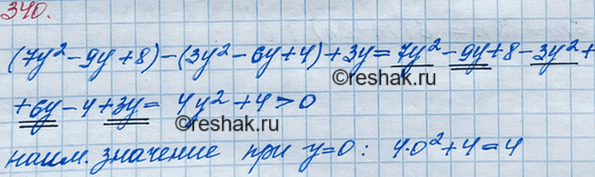 340.
(7y²-9y+8)-(3y²-6y+4)+3y=7y²-9y+8-3y²+
©reshak.ru
+6y-4+3y= 4y²+4>0
©reshak.ru
наим. значение при y=0: 4·0²+4=4